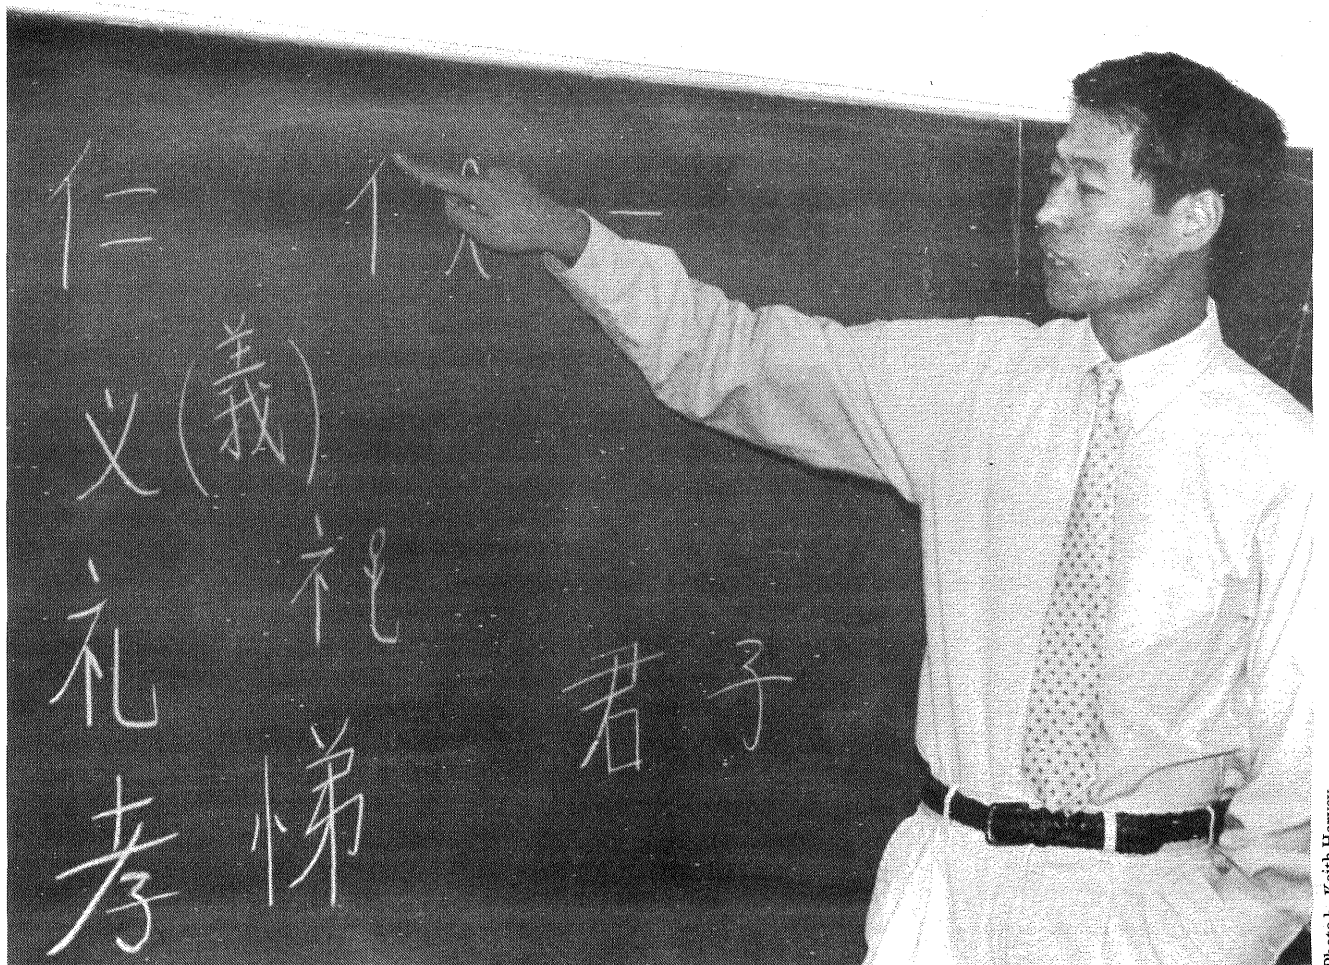 仁 亻 人
义(義)
礻
礼
君子
孝 悌
Photo by Keith Harvey